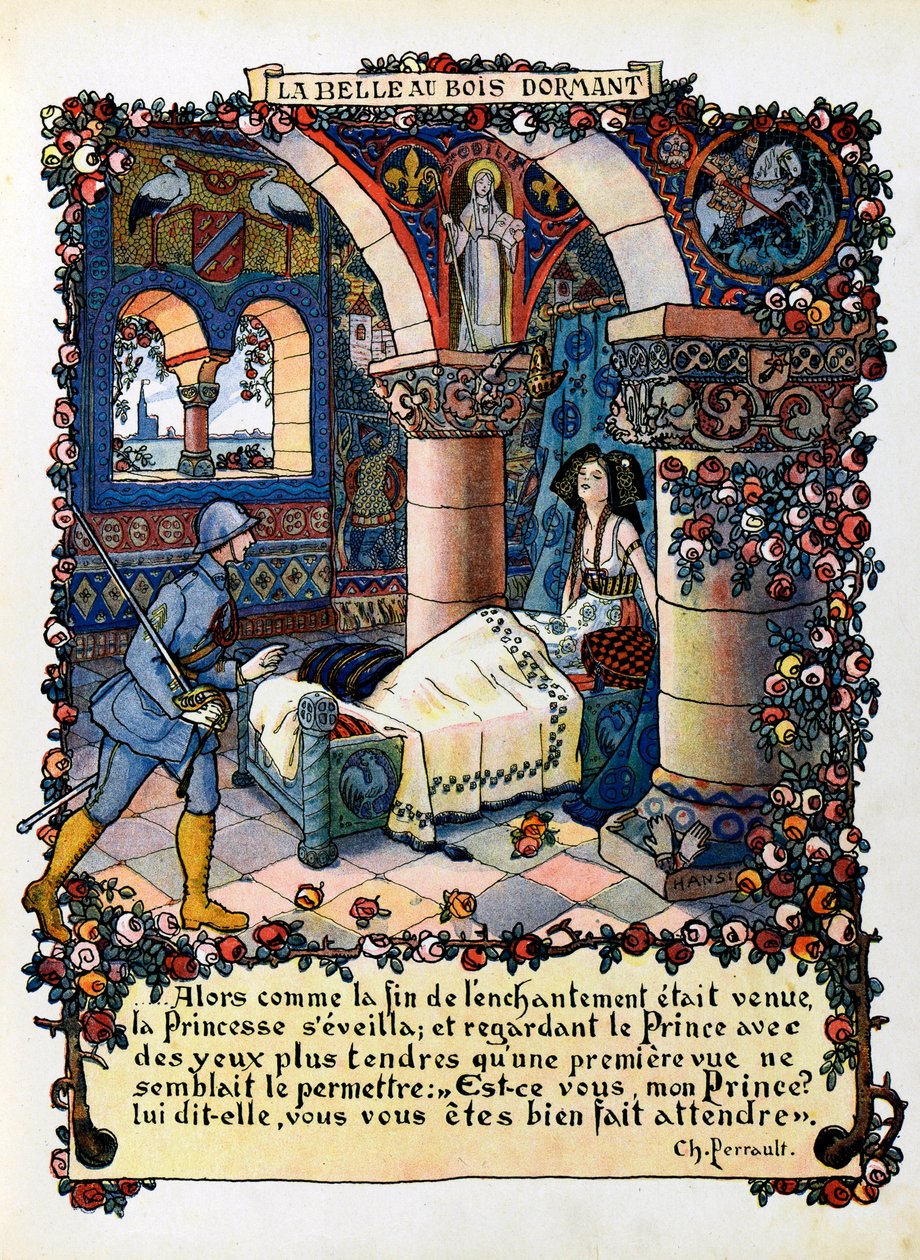 LA BELLE AU BOIS DORMANT
ODILIA
HANSI
....Alors comme la fin de l'enchantement était venue,
la Princesse s'éveilla; et regardant le Prince avec
des yeux plus tendres qu'une première vue ne
semblait le permettre:„Est-ce vous, mon Prince?
lui dit-elle, vous vous êtes bien fait attendre».
Ch. Perrault.